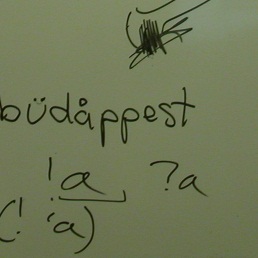 büdåppest
!a ?a
(! 'a)